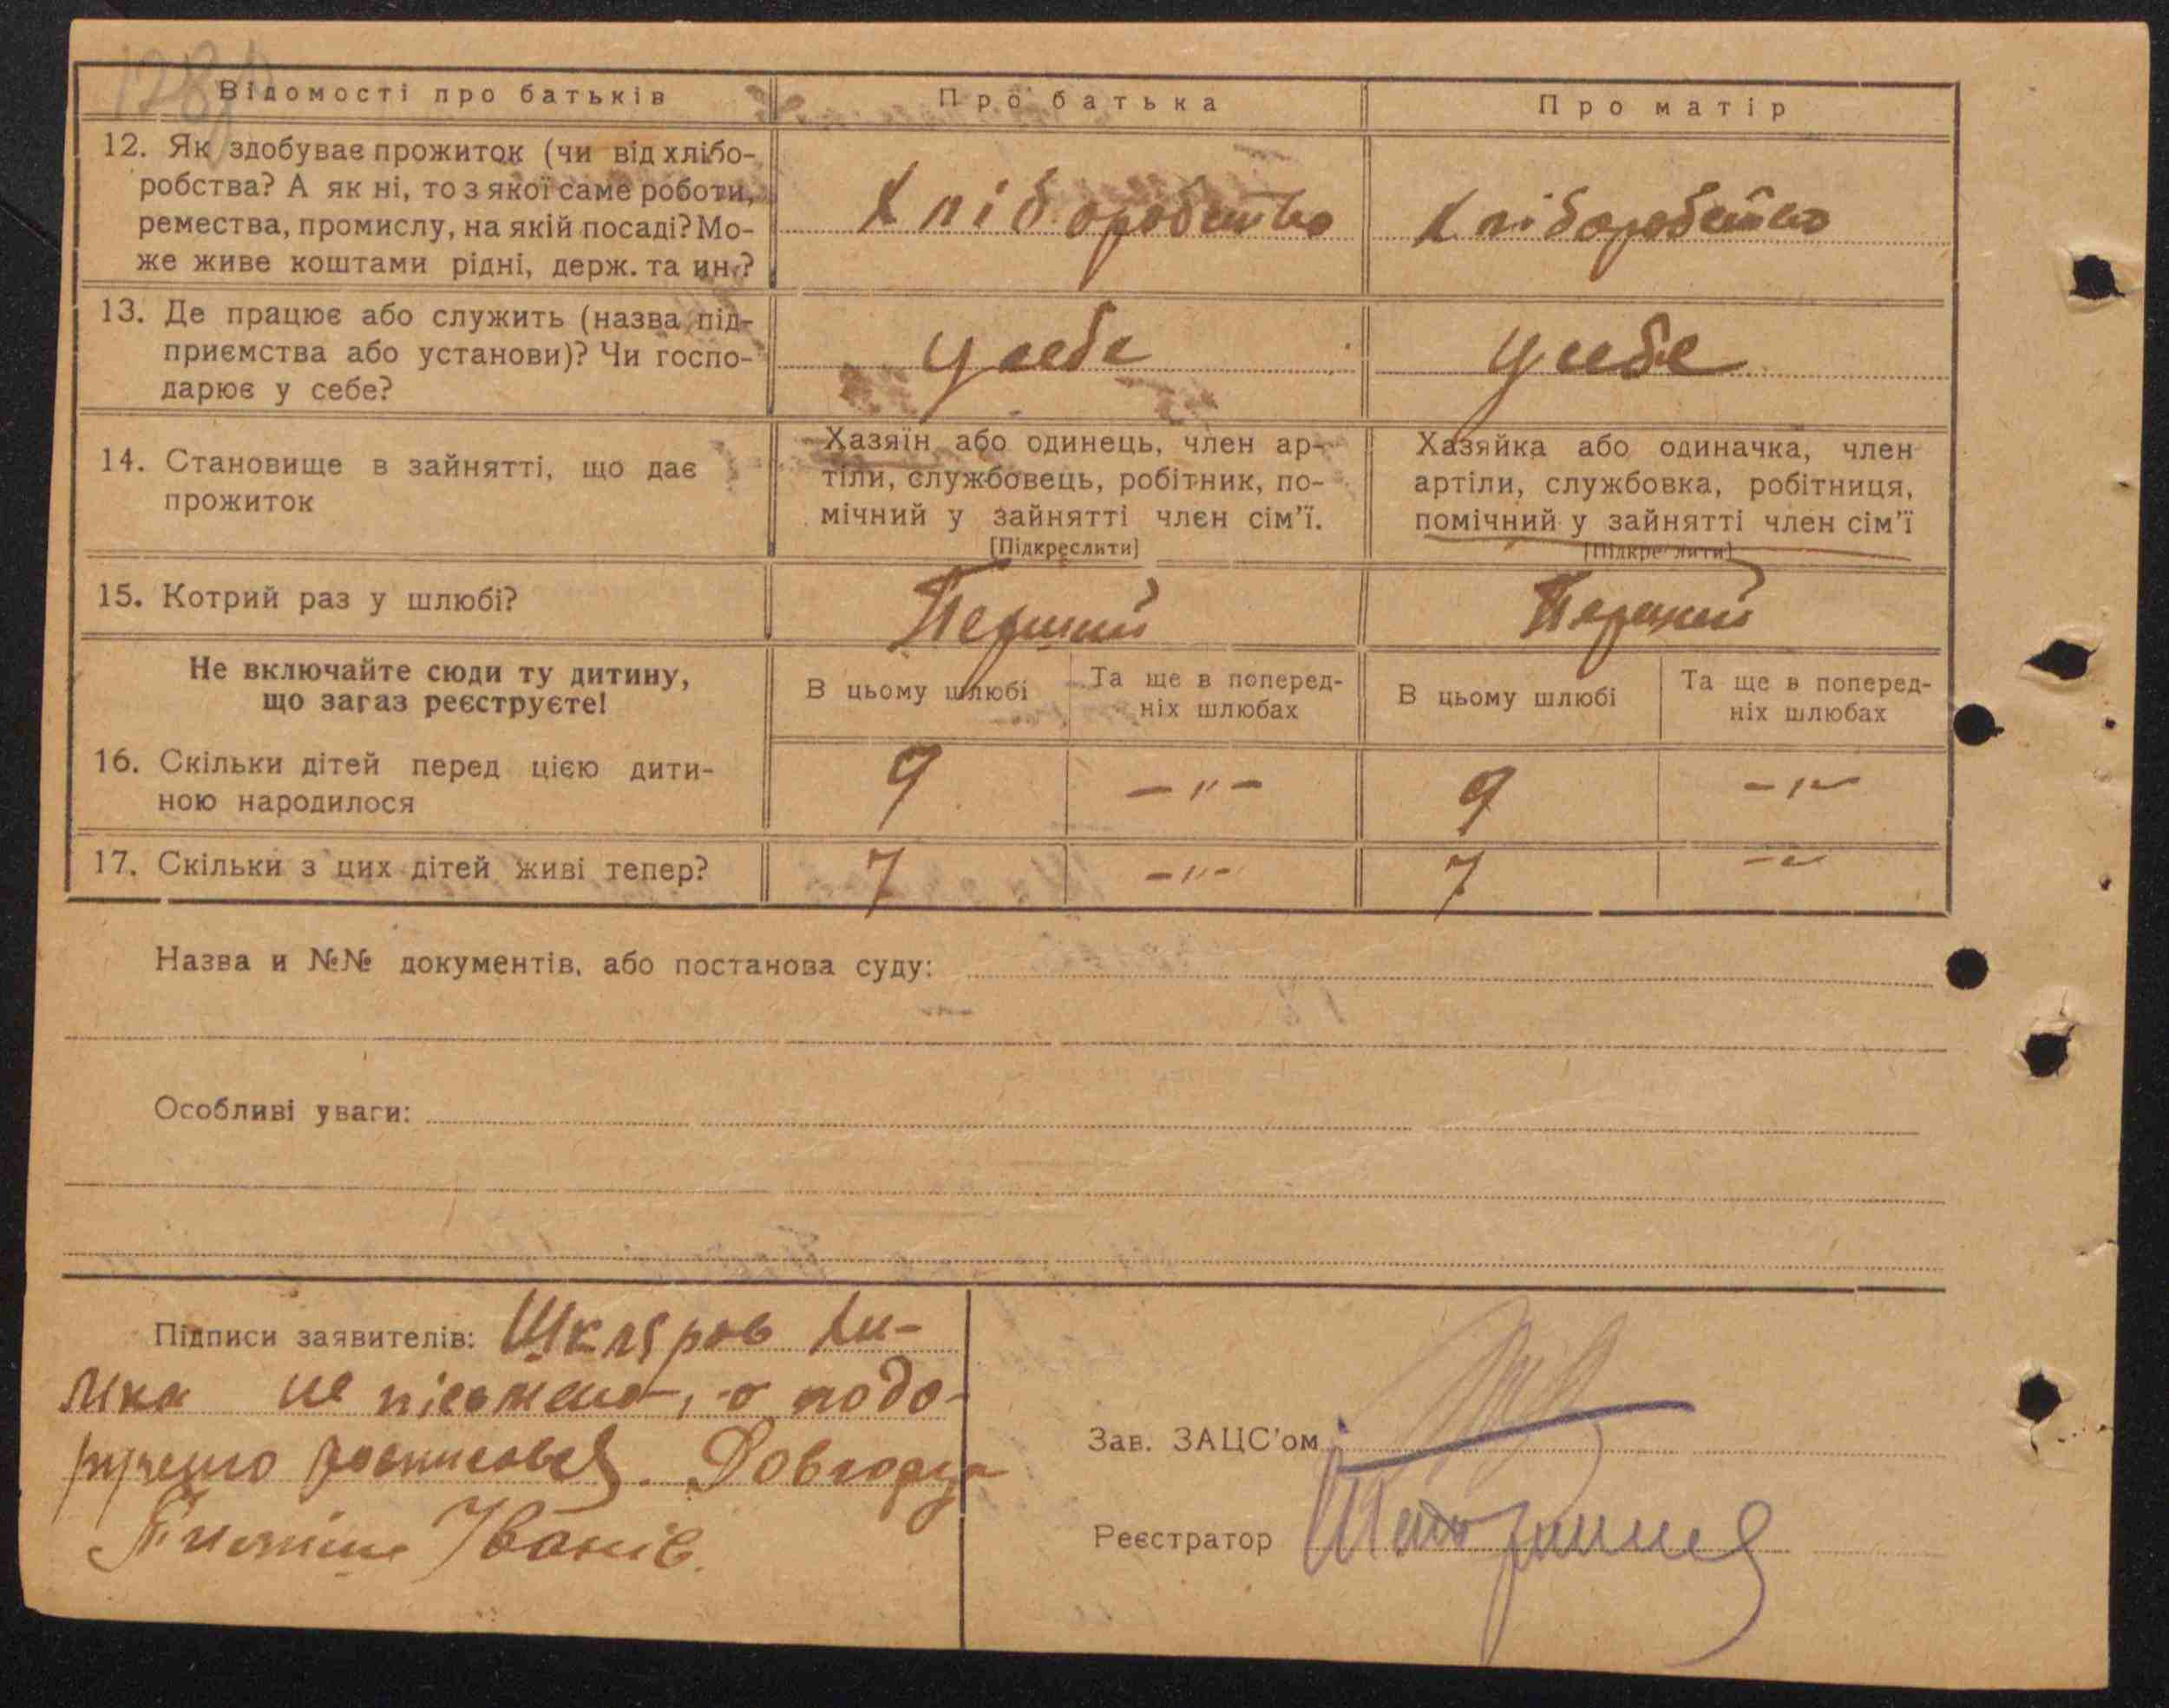 128
Відомості про батьків
Про батька
Про матір
12. Як здобуває прожиток (чи від хлібо-
робства? А як ні, то з якої саме роботи,
ремества, промислу, на якій посаді? Мо-
же живе коштами рідні, держ. та ин.?
Хліборобство
Хліборобство
13. Де працює або служить (назва під-
приємства або установи)? Чи госпо-
дарює у себе?
У себе
У себе
14. Становище в зайнятті, що дає
прожиток
Хазяїн або одинець, член ар-
тіли, службовець, робітник, по-
мічний у зайнятті член сім'ї.
[Підкреслити]
Хазяйка або одиначка, член
артіли, службовка, робітниця,
помічний у зайнятті член сім'ї
[Підкреслити]
15. Котрий раз у шлюбі?
Перший
Перший
Не включайте сюди ту дитину,
що загаз реєструєте!
В цьому шлюбі
Та ще в поперед-
ніх шлюбах
В цьому шлюбі
Та ще в поперед-
ніх шлюбах
16. Скільки дітей перед цією дити-
ною народилося
9
-"-
9
-"-
17. Скільки з цих дітей живі тепер?
7
-"-
7
-"-
Назва и №№ документів, або постанова суду:
Особливі уваги:
Підписи заявителів: Шкляров
не
росписовся.
Іванів.
Зав. ЗАЦС'ом
Реєстратор